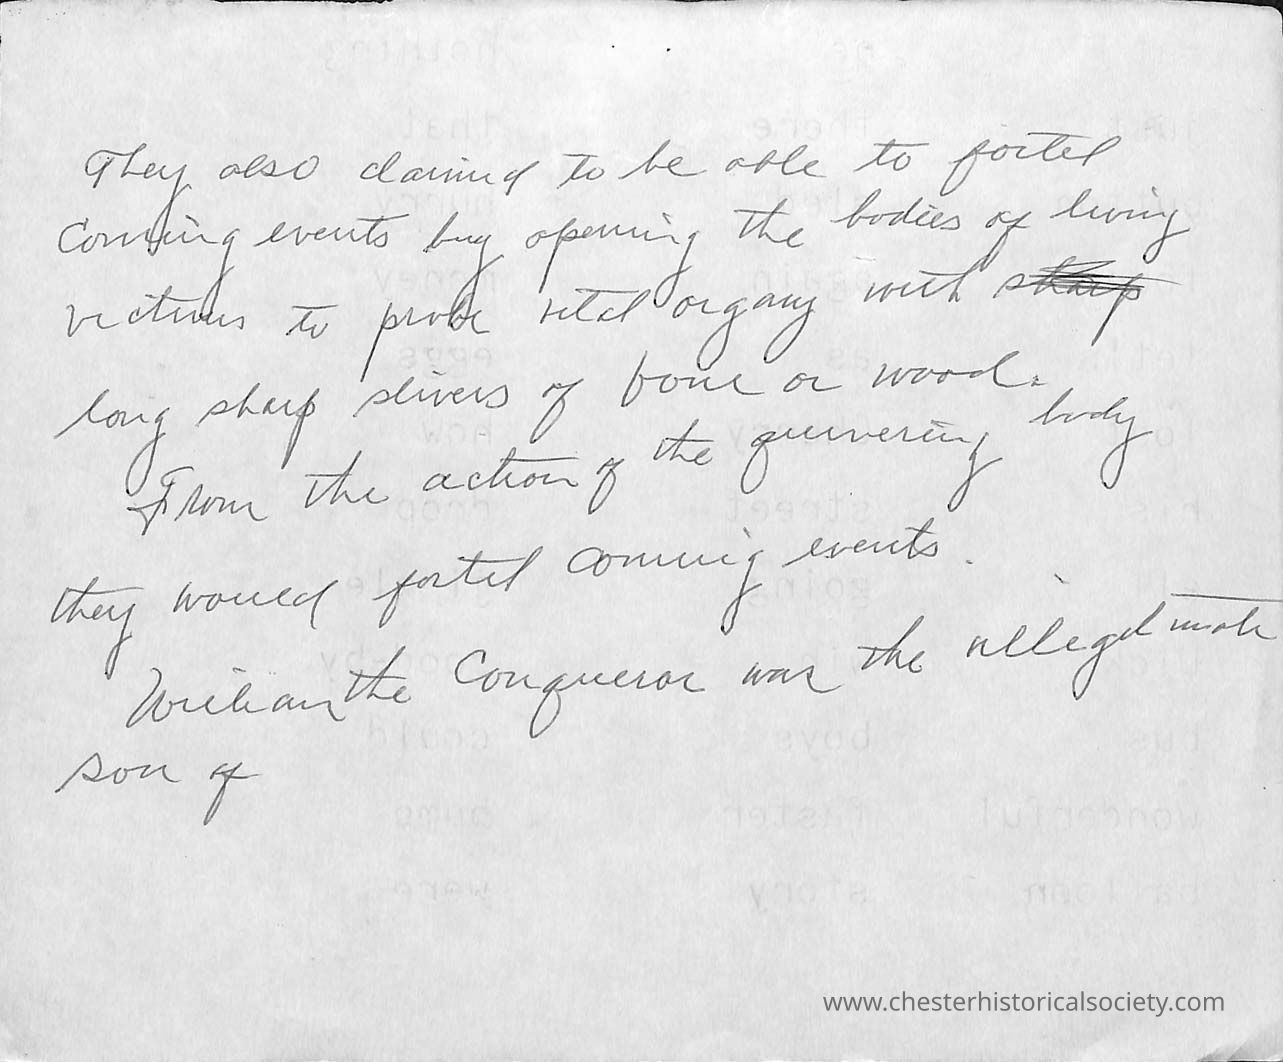 They also claimed to be able to fortel
Coming events buy opening the bodies of living
victims to probe vital organs with sharp
long sharp slivers of bone or wood.
From the action of the quivering body
they would fortel coming events.
William the Conqueror was the illegetmate
son of
www.chesterhistoricalsociety.com